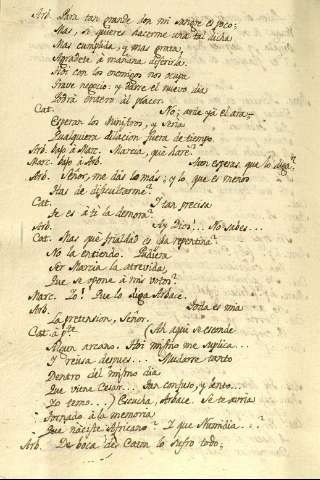 Arb. Para tan grande don mi sangre es poco:
Mas, si quieres hacerme una tal dicha
Mas cumplida, y mas grata,
Agradete à mañana diferirla.
Hoi con los enemigos nos ocupa
Grave negocio: y entre el nuevo dia
Podrà entero al placer.
Cat. No; arde yà el ara:
Esperan los Ministros, y seria
Qualquiera dilacion fuera de tiempo.
Arb. bajo à Marc. Marcia, què harè?
Marc. bajo à Arb. Aun esperas que lo diga?
Arb. Señor, me das lo mas; y lo que es menos
Has de dificultarme?
Cat. Y tan precisa
Te es à tì la demora?
Arb. Ay Dios!... No sabes...
Cat. Mas què frialdad es esta repentina?
No la entiendo. Pudiera
Ser Marcia la atrevida,
Que se opone à mis votos?
Marc. Yo! Que lo diga Arbace.
Arb. Toda es mia
La pretension, Señor.
Cat. à pte. (Ah aqui se esconde
Algun arcano. Hoi mismo me suplica...
Y reusa despues... Mudarse tanto
Dentro del mismo dia
Que viene Cesar... Tan confuso, y lento...
Yo temo...) Escucha, Arbace. Se te avria
Tornado à la memoria
Que naciste Africano? Y que Numidia...?
Arb. De boca de Caton lo sufro todo;